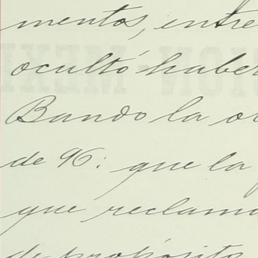 mentos, entre
ocultó haber
Bando la or
de 96: que la
que reclamo
de propósito